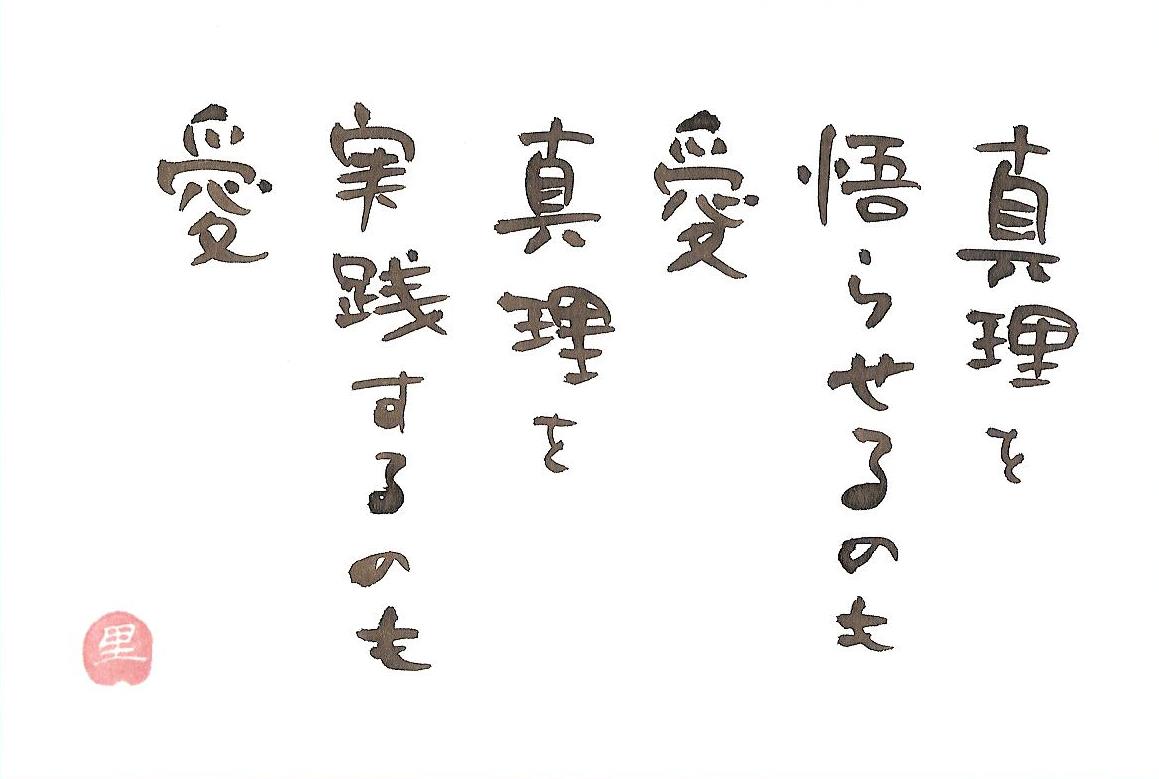 真理を
悟らせるのも
愛
真理を
実践するのも
愛
里